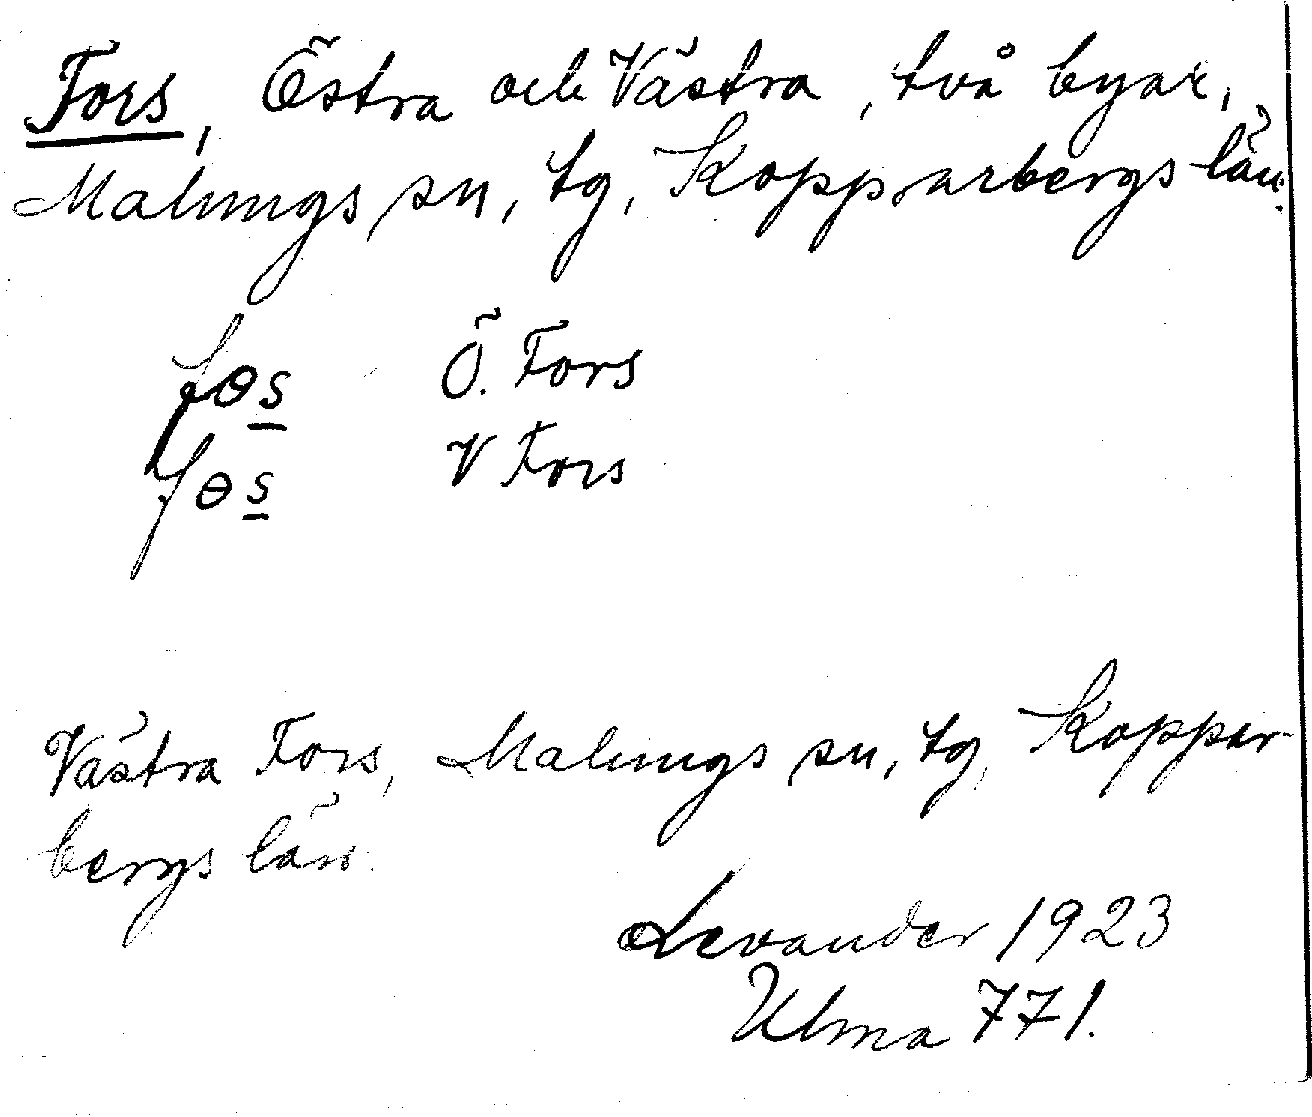 Fors, Östra och Västra, två byar,
Malungs sn, tg, Kopparbergs län.
fɵs Ö. Fors
fɵs V Fors
Västra Fors, Malungs sn, tg, Koppar-
bergs län.
Levander 1923
Ulma 771.